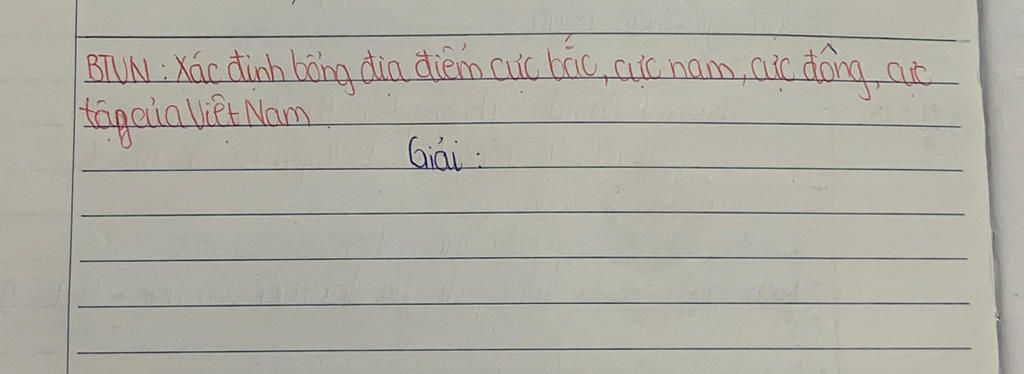 BTVN : Xác định bống địa điểm cực bắc, cực nam, cực đông, cực
tây của Việt Nam.
Giải :